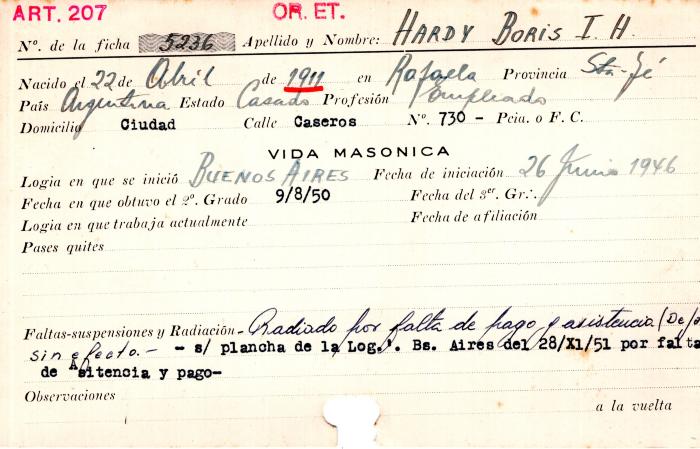 ART. 207 OR. ET.
Nº. de la ficha 5236 Apellido y Nombre: HARDY BORIS I. H.
Nacido el 22 de Abril de 1911 en Rafaela Provincia Sta-Fé
País Argentina Estado Casado Profesión Empleado
Domicilio Ciudad Calle Caseros Nº. 730 - Pcia. o F. C.
VIDA MASONICA
Logia en que se inició BUENOS AIRES Fecha de iniciación 26 Junio 1946
Fecha en que obtuvo el 2º. Grado 9/8/50 Fecha del 3er. Gr∴
Logia en que trabaja actualmente Fecha de afiliación
Pases quites
Faltas-suspensiones y Radiación- Radiado por falta de pago y asistencia (Dejó
sin efecto.- - s/ plancha de la Log.'. Bs. Aires del 28/X1/51 por falta
de Asitencia y pago-
Observaciones
a la vuelta